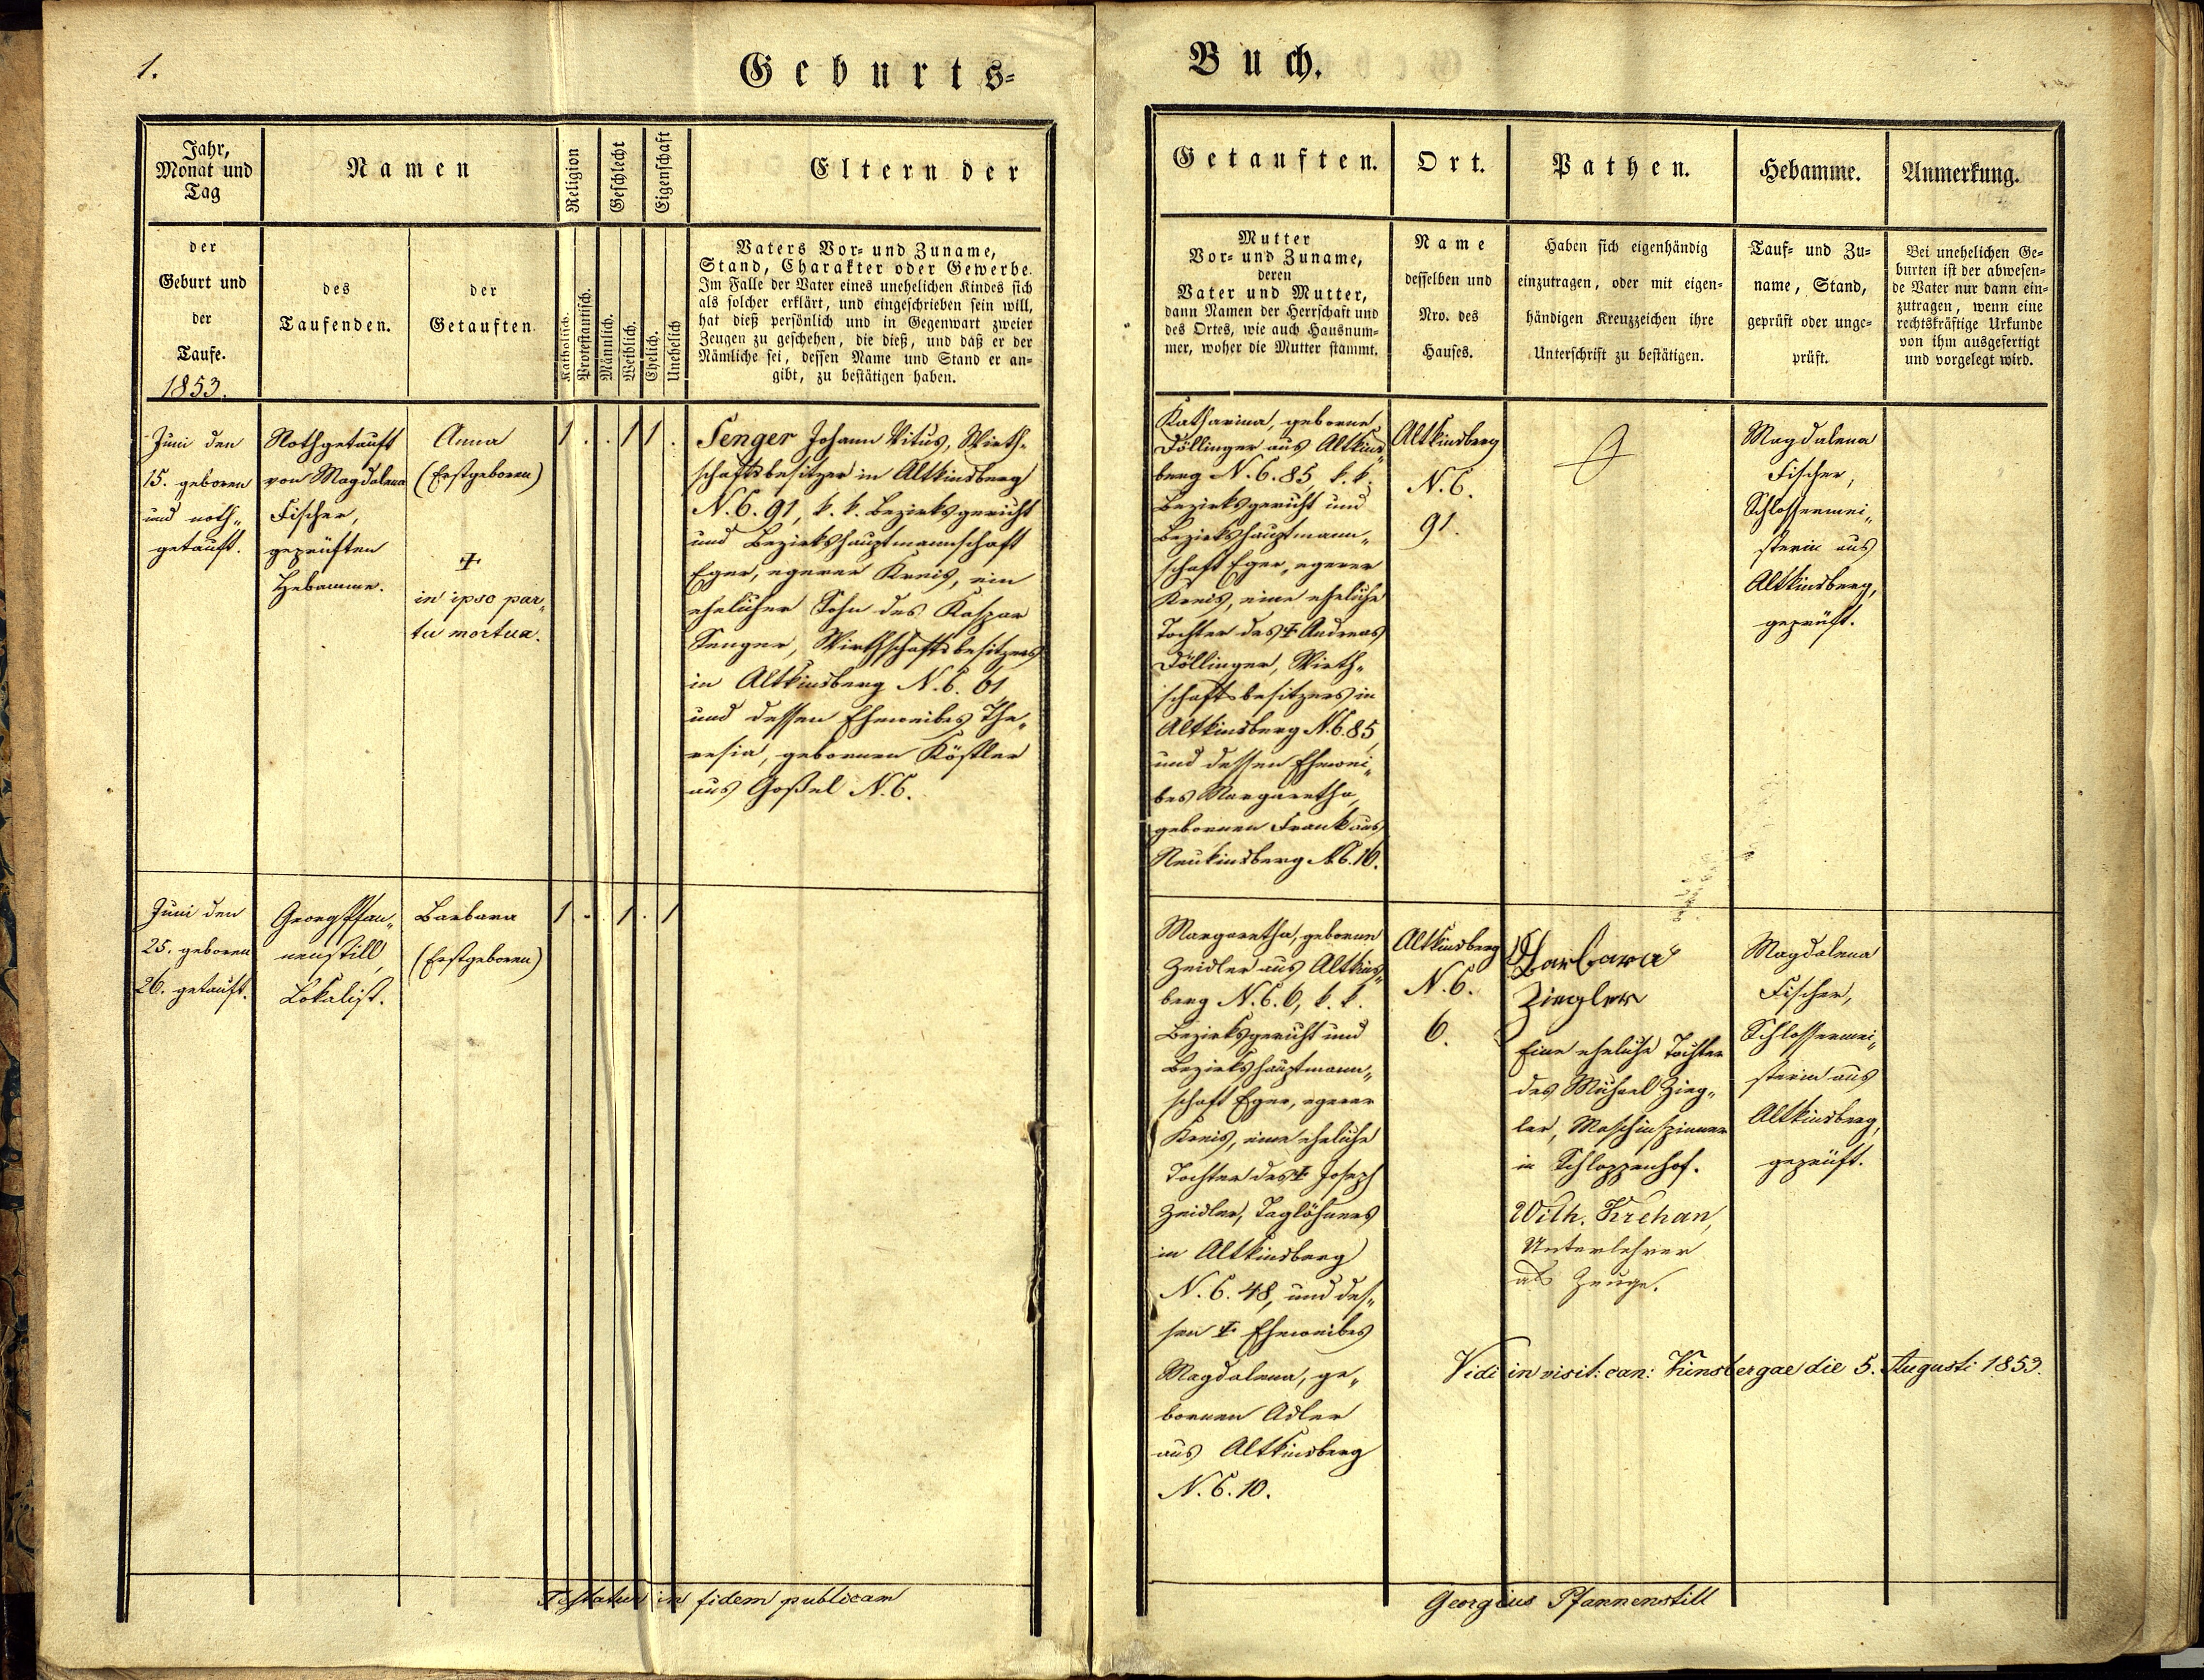 1.
Geburts-
Buch.
Jahr,
Monat und
Tag
der
Geburt und
der
Taufe.
1853.
Namen
des
Taufenden.
der
Getauften.
Religion
Katholisch.
Protestantisch.
Geschlecht
Männlich.
Weiblich.
Eigenschaft
Ehelich.
Unehelich
Eltern der
Vaters Vor- und Zuname,
Stand, Charakter oder Gewerbe.
Im Falle der Vater eines unehelichen Kindes sich
als solcher erklärt, und eingeschrieben sein will,
hat dieß persönlich und in Gegenwart zweier
Zeugen zu geschehen, die dieß, und daß er der
Nämliche sei, dessen Name und Stand er an-
gibt, zu bestätigen haben.
Getauften.
Mutter
Vor- und Zuname,
deren
Vater und Mutter,
dann Namen der Herrschaft und
des Ortes, wie auch Hausnum-
mer, woher die Mutter stammt.
Ort.
Name
desselben und
Nro. des
Hauses.
Pathen.
Haben sich eigenhändig
einzutragen, oder mit eigen-
händigen Kreuzzeichen ihre
Unterschrift zu bestätigen.
Hebamme.
Tauf- und Zu-
name, Stand,
geprüft oder unge-
prüft.
Anmerkung.
Bei unehelichen Ge-
burten ist der abwesen-
de Vater nur dann ein-
zutragen, wenn eine
rechtskräftige Urkunde
von ihm ausgefertigt
und vorgelegt wird.
Juni den
15. geboren
und noth-
getauft.
Nothgetauft
von Magdalena
Fischer,
geprüften
Hebamme.
Anna
(Erstgeboren)
✝
in ipso par-
tu mortua.
1 . . 1 1 .
Senger Johann Vitus, Wirth-
schaftsbesitzer in Altkinsberg
N.C. 91, k. k. Bezirksgericht
und Bezirkshauptmannschaft
Eger, egerer Kreis, ein
ehelicher Sohn des Kaspar
Senger, Wirthschaftsbesitzers
in Altkinsberg N.C. 61
und dessen Eheweibes The-
resia, gebornen Köstler
aus Goßel N.C.
Katharina, geborne
Döllinger aus Altkins-
berg N.C. 85, k. k.
Bezirksgericht und
Bezirkshauptmann-
schaft Eger, egerer
Kreis, eine eheliche
Tochter des ✝ Andreas
Döllinger, Wirth-
schaftsbesitzers in
Altkinsberg N.C. 85,
und dessen Ehewei-
bes Margaretha,
gebornen Frank aus
Neukinsberg N.C. 10.
Altkinsberg
N.C.
91.
Magdalena
Fischer,
Schlossermei-
sterin aus
Altkinsberg,
geprüft.
Juni den
25. geboren
26. getauft.
Georg Pfan-
nenstill,
Lokalist.
Barbara
(Erstgeboren)
1 . . 1 . 1
Margaretha, geborne
Zeidler aus Altkins-
berg N.C. 6, k. k.
Bezirksgericht und
Bezirkshauptmann-
schaft Eger, egerer
Kreis, eine eheliche
Tochter des ✝ Joseph
Zeidler, Taglöhners
in Altkinsberg
N.C. 48, und des-
sen ✝ Eheweibes
Magdalena, ge-
bornen Adler
aus Altkinsberg
N.C. 10.
Altkinsberg
N.C.
6.
Barbara
Ziegler
Eine eheliche Tochter
des Michael Zieg-
ler, Maschinspinner
in Schloppenhof.
Wilh. Krehan,
Unterlehrer
als Zeuge.
Magdalena
Fischer,
Schlossermei-
sterin aus
Altkinsberg,
geprüft.
Vidi in visit: can: Kinsbergae die 5. Augusti 1853.
Testatur in fidem publicam
Georgius Pfannenstill